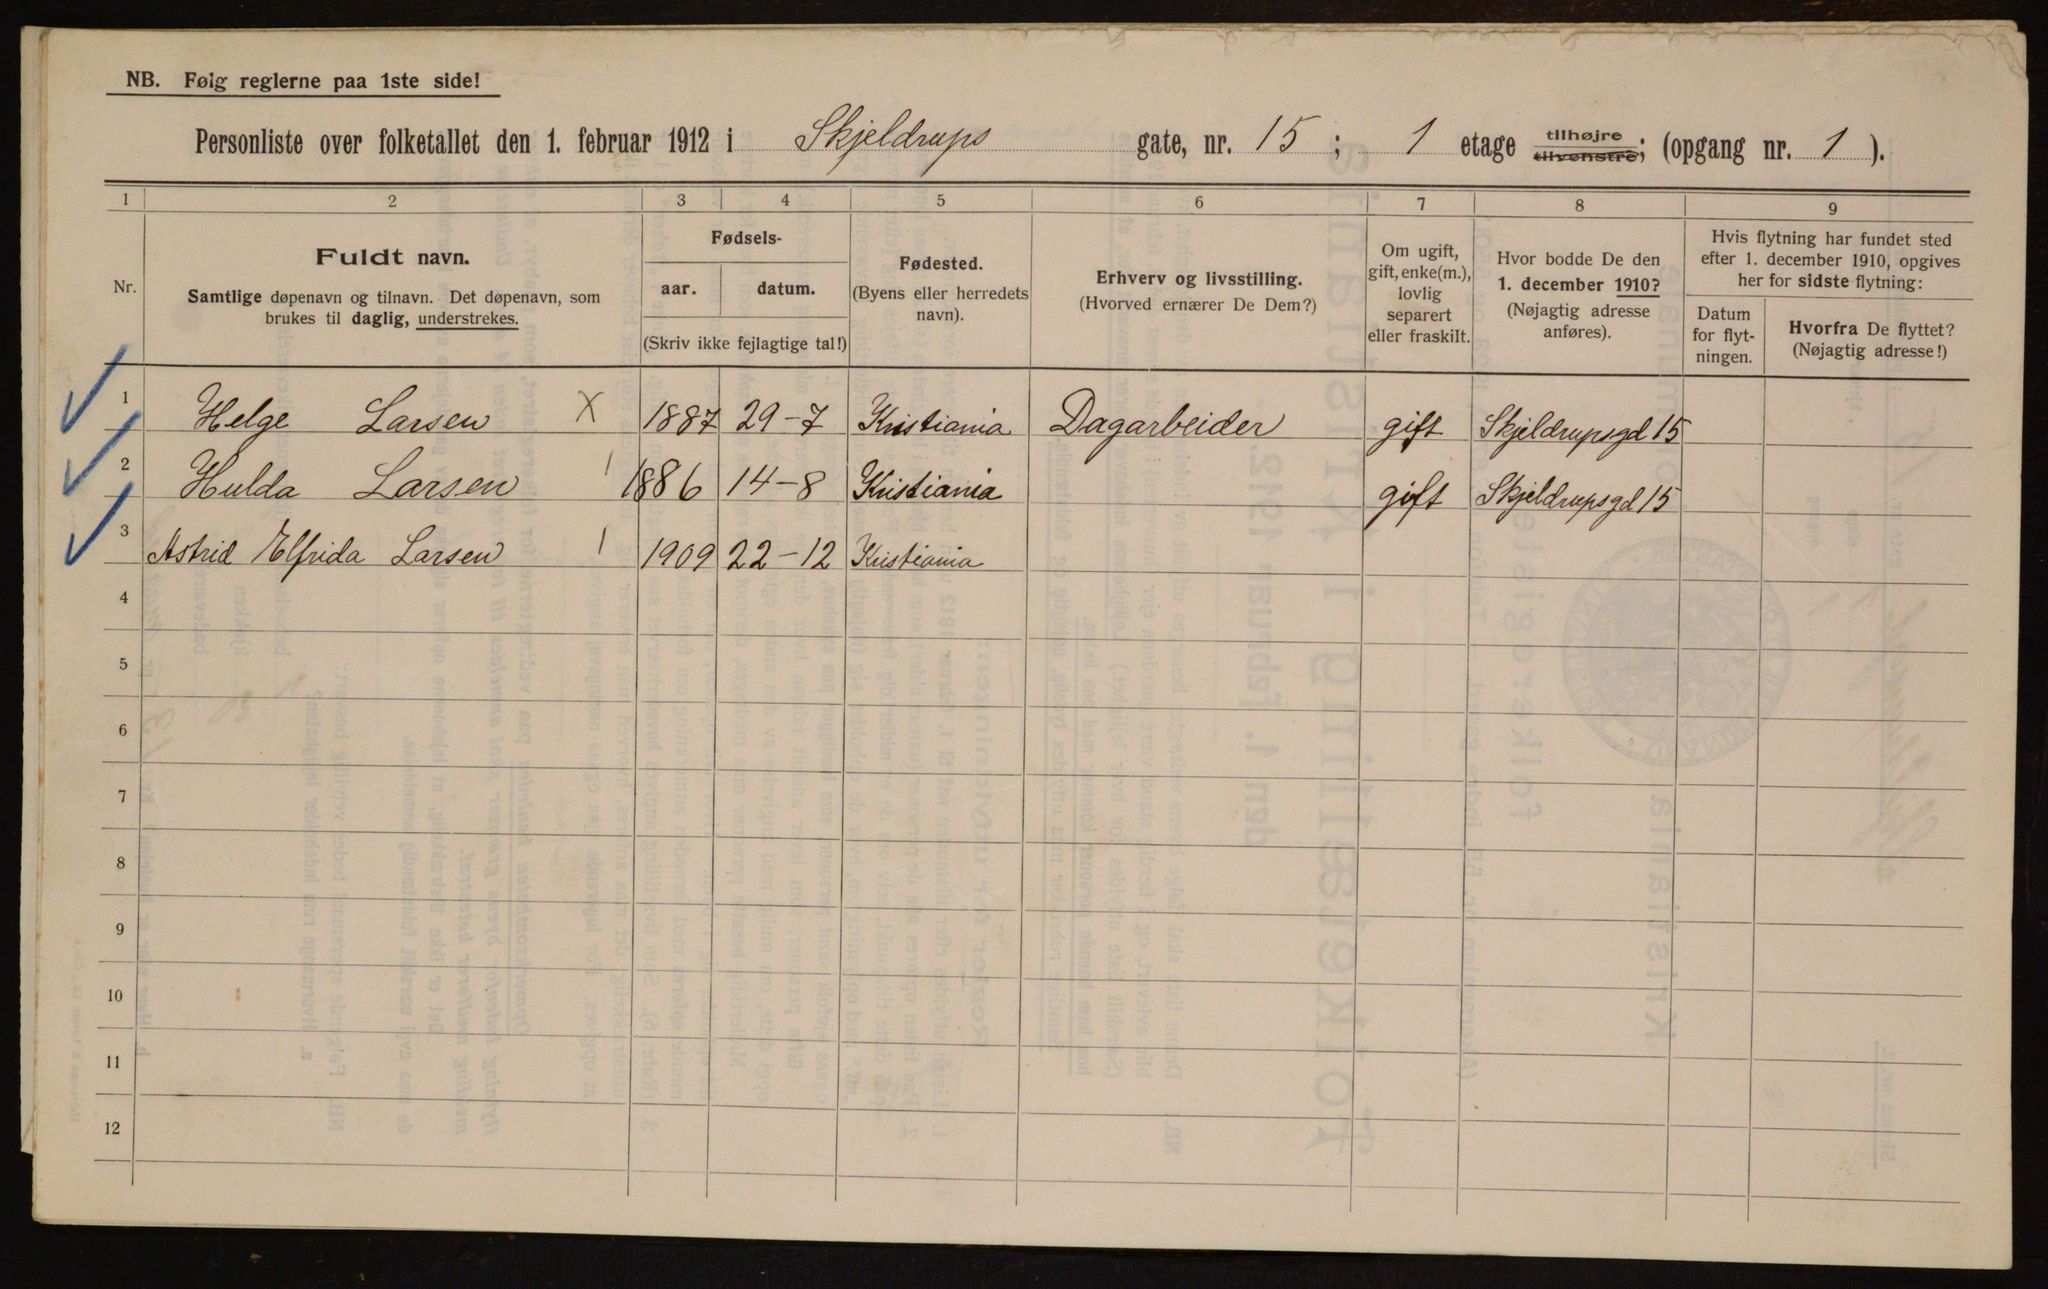 NB. Følg reglerne paa 1ste side!
Personliste over folketallet den 1. februar 1912 i Skjeldrups gate, nr. 15; 1 etage tilhøjre tilvenstre; (opgang nr. 1).
1 2 3 4 5 6 7 8 9
Nr.
Fuldt navn.
Samtlige døpenavn og tilnavn. Det døpenavn, som
brukes til daglig, understrekes.
Fødsels-
aar. datum.
(Skriv ikke fejlagtige tal!)
Fødested.
(Byens eller herredets
navn).
Erhverv og livsstilling.
(Hvorved ernærer De Dem?)
Om ugift,
gift, enke(m.),
lovlig
separert
eller fraskilt.
Hvor bodde De den
1. december 1910?
(Nøjagtig adresse
anføres).
Hvis flytning har fundet sted
efter 1. december 1910, opgives
her for sidste flytning:
Datum
for flyt-
ningen.
Hvorfra De flyttet?
(Nøjagtig adresse!)
1 Helge Larsen X 1887 29-7 Kristiania Dagarbeider gift Skjeldrupsgd 15
2 Hulda Larsen 1 1886 14-8 Kristiania gift Skjeldrupsgd 15
3 Astrid Elfrida Larsen 1 1909 22-12 Kristiania
4
5
6
7
8
9
10
11
12